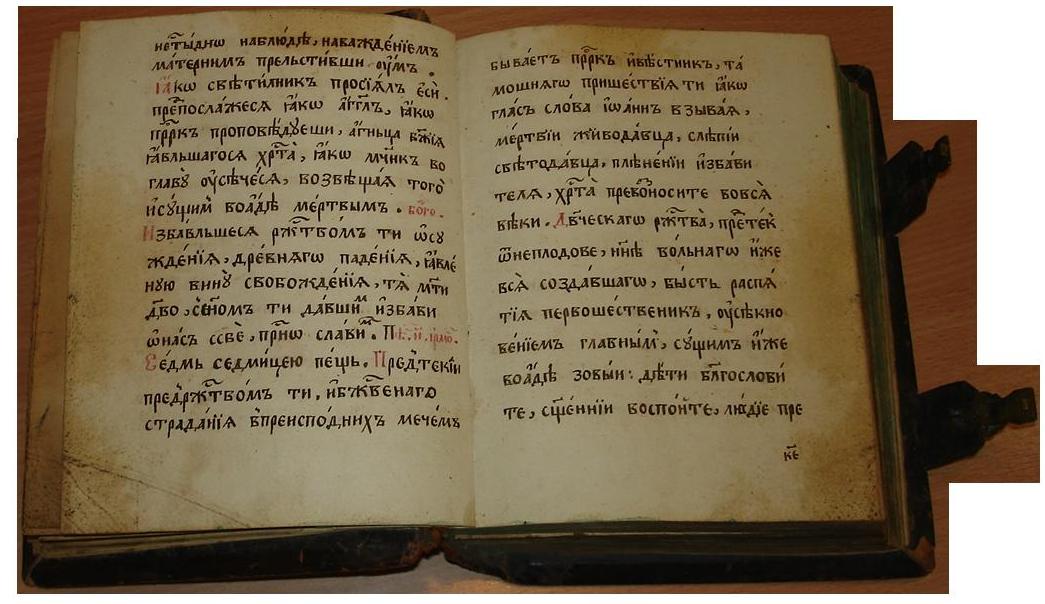 нестыднѡ наблюдѣ, наважде́нїемъ
ма́тернимъ прельсти́вши ᲂу҆́мъ .
Іа́кѡ свѣти́лникъ просїѧ́лъ є҆сѝ .
предпосла́жесѧ ꙗ҆́кѡ а҆́гг҃лъ, ꙗ҆́кѡ
прⷪ҇ро́къ проповѣ́дꙋеши, а҆́гньца бж҃їѧ
ꙗ҆́вльшагосѧ хрⷭ҇та̀, ꙗ҆́кѡ мч҃нкъ во
главꙋ̀ ᲂу҆сѣче́сѧ, возвѣща́ѧ того̀
и҆сꙋ́щимъ воа҆́дѣ ме́ртвымъ . бо́го .
Избавльшесѧ ржⷭ҇тво́мъ ти ѡ҆сꙋ
жде́нїѧ, дре́внѧгѡ паде́нїѧ, ꙗ҆вле́
ную винꙋ̀ свобожде́нїѧ, тѧ̀ мт҃и
дв҃о, сн҃омъ ти да́вшимъ и҆зба́ви
ѡ҆на́съ себѐ, при́снѡ сла́вим .
Се́дмь седми́цею пе́щь . Предте́кїи
предржⷭ҇тво́мъ ти, и҆бжⷭ҇твенагѡ
страда́нїѧ в̾преиспо́днихъ мече́мъ
быва́етъ прⷪ҇ро́къ и҆вѣ́стникъ, та́
мошнѧгѡ прише́ствїѧ ти ꙗ҆́кѡ
гла́съ сло́ва і҆ѡа́ннъ взыва́ѧ,
ме́ртвїи живода́вца, слѣпі́и
свѣтода́вца, плѣне́нїи и҆зба́ви
телѧ, хрⷭ҇та̀ превозноси́те вовсѧ̀
вѣ́ки . Дв҃ческагѡ ржⷭ҇тва̀, претеко́
ѿнепло́дове, нн҃ѣ во́льнагѡ и҆́же
всѧ̀ созда́вшагѡ, бы́сть распѧ́
тїѧ первоше́ственикъ, ᲂу҆сѣ́кно
ве́нїемъ гла́внымъ, сꙋ́щимъ и҆́же
воа҆́дѣ зовы́и : дѣ́ти бл҃гослови́
те, сщ҃е́ннїи воспо́йте, лю́дїе пре